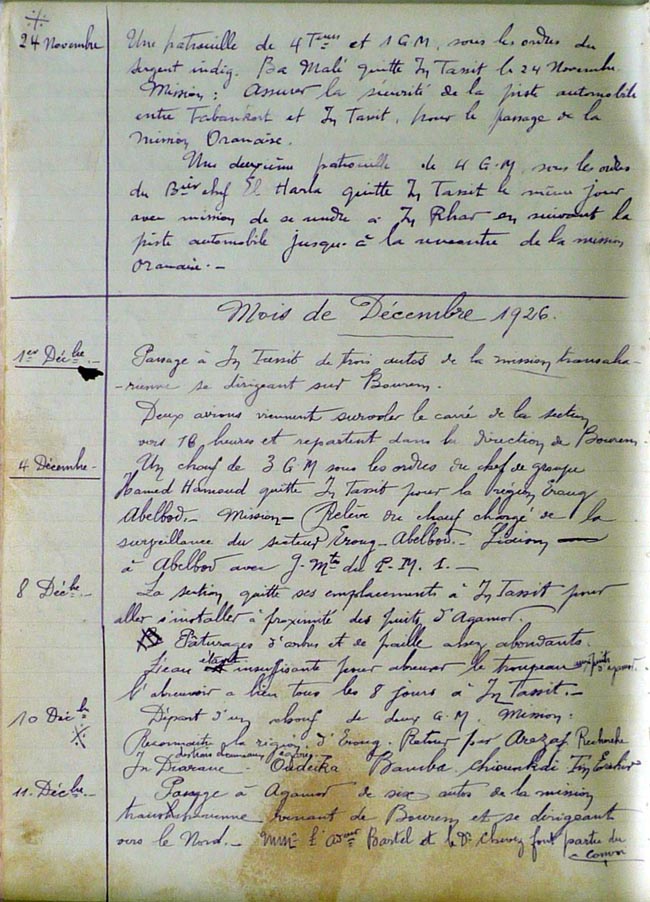 24 Novembre
Une patrouille de 4 T^eurs et 1 G.M. sous les ordres du
sergent indig. Ba Mali quitte In Tassit le 24 Novembre.
Mission : Assurer la sécurité de la piste automobile
entre Tabankort et In Tassit, pour le passage de la
mission Oranaise.
Une deuxième patrouille de 4 G.M. sous les ordes
du B^ier chef El Harla quitte In Tassit le même jour
avec mission de se rendre à In Rhar en suivant la
piste automobile jusque à la rencontre de la mission
Oranaise. –
Mois de Décembre 1926.
1er Décbre.-
Passage à In Tassit de trois autos de la mission transaha-
-rienne se dirigeant sur Bourem.
Deux avions viennent survoler le carré de la section
vers 16 heures et repartent dans la direction de Bourem
4 Décembre-
Un chouf de 3 G M sous les ordres du chef de groupe
Hamed Hamoud quitte In Tassit pour la région Eroug
Abelbod.- Mission- Relève du chouf chargé de la
surveillance du secteur Eroug-Abelbod. Liaison
à Abelbod avec G-Mtes du P.M.1.-
8 Décbre.-
La section quitte ses emplacements à In Tassit pour
aller s'installer à proximité des puits d'Agamor.
Pâturages d'arbres et de paille assez abondants.
L'eau étant insuffisante pour abreuver le troupeau aux puits d'Agamor
l'abreuvoir a lieu tous les 8 jours à In Tassit.-
10 Décbre
Départ d'un chouf de deux G.M. Mission :
Reconnaitre la région d'Eroug. Retour par Arezaf Recherche
In Diarane - Oudeïka Bamba
11 Décbre.-
Passage à Agamor de six autos de la mission
transsaharienne venant de Bourem et se dirigeant
vers le Nord.- Bartel et le Dr font partie du
convoi